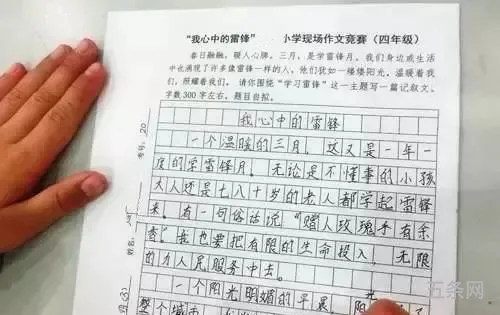 “我心中的雷锋” 小学现场作文竞赛（四年级）
春日融融，暖人心脾，三月，是学雷锋月。我们身边或生活
中也涌现了许多像雷锋一样的人，他们犹如一缕缕阳光，温暖着我
们，照耀着我们。 请你围绕“学习雷锋”这一主题写一篇记叙文，
字数300字左右，题目自拟。
我心中的雷锋
一个温暖的三月，这又是一年一
度的学雷锋月。无论是不懂事的小孩
大人还是七八十岁的老人都学起雷锋
来。有一句俗话说“赠人玫瑰手有余
香”我也要把有限的生命投入，无限
的为人民服务中去。
一个阳光明媚的早晨，阳光
整个城市
考号：20
姓名：
五条网